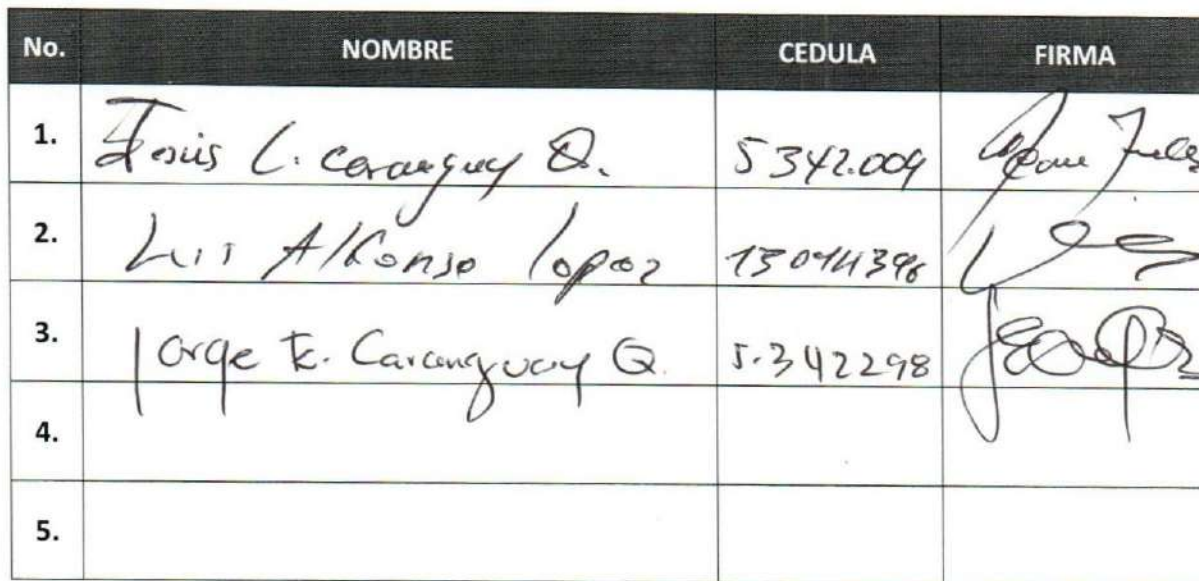 No. NOMBRE CEDULA FIRMA
1. Jesus L. Caranguay Q. 5342.009
2. Luis Alfonso lopez
3. Jorge E. Caranguay Q. 5.342298
4.
5.